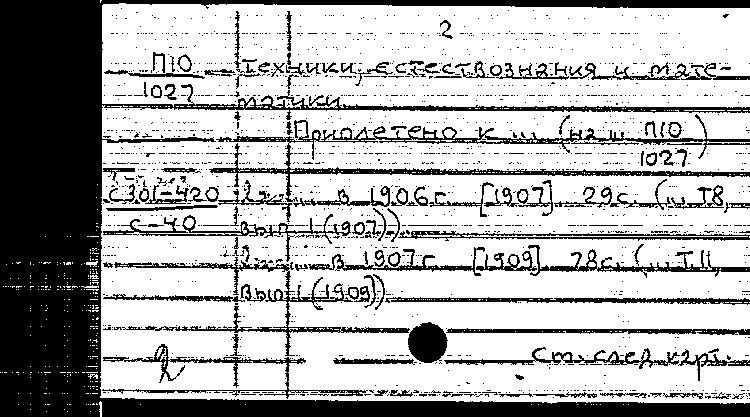 2
П10 техники, естествознания и мате-
1027 матики.
Приплетено к ... (на ш. П10
1027)
С301-420 в 1906 г. [1907]. 29с. (... Т8,
с-40 вып. 1 (1907)).
в 1907 г. [1909]. 78с. (... Т.11,
вып. 1 (1909)).
См. след. карт.